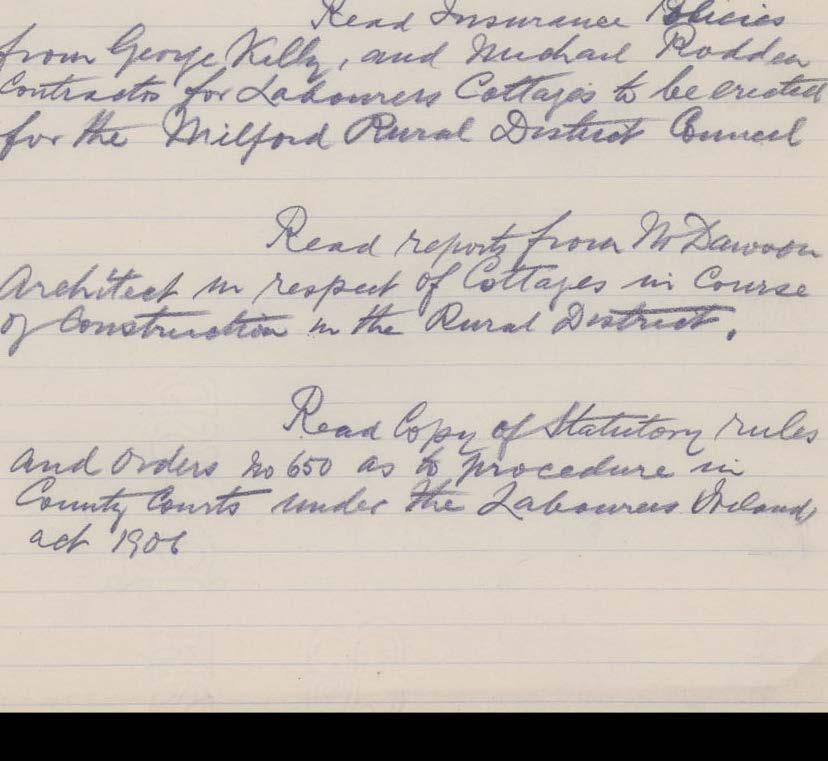 Read Insurance Policies
from George Kelly, and Michael Rodden
Contractos for Labourers Cottages to be erected
for the Milford Rural District Council
Read reports from Mr Dawson
Architect in respect of Cottages in Course
of Construction in the Rural District.
Read Copy of Statutory rules
and Orders No 650 as to procedure in
County Courts under the Labourers Ireland)
act 1906